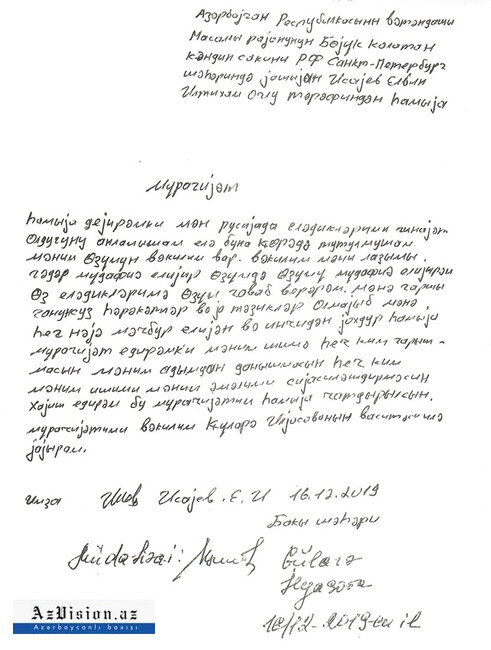 Азәрбојҹан Республикасынын вәтәндашы
Масаллы рајонунун Бөјүк колатан
кәндин сакини РФ Санкт-Петербург
шәһәриндә јашијан Исајев Елвин
Илтихам Оғлу тәрәфиндән һамыја
мурачијәт
һамыја дејирәмки мән русијада еләдикләрими ҹинајәт
олдуғуну анламышам елә буна көрәдә тутулмушам
мәним өзүмүн вәкилим вар. вәкилим мәни лазымы
гәдәр мудафиә елијир өзүмдә өзүмү мудафиә елијирәм
өз еләдикләримә өзүм ҹаваб верәрәм. мәнә гаршы
ганунсуз һәрәкәтләр вә јә тәзигләр олмајыб мәнә
һеч нәјә мәҹбур елијән вә инҹидән јохдур һамыја
мурачијәт едирәмки мәним ишимә һеч ким гарыш-
масын мәним адымдан данышмасын һеч ким
мәним ишими мәним әмәлими сијасиләшдирмәсин
Хајиш едирәм бу мурачијәтми һамыја чатдырылсын.
мурачијәтими вәкилим Күларә Илјасованын васитәсилә
јајырам.
имза Исајев. Е. И 16.12.2019
Бакы шәһәри
Müdafiəçi: Gülarə
İlyasova
16/12-2019-cu il
AzVision.az
Azərbaycanlı baxışı